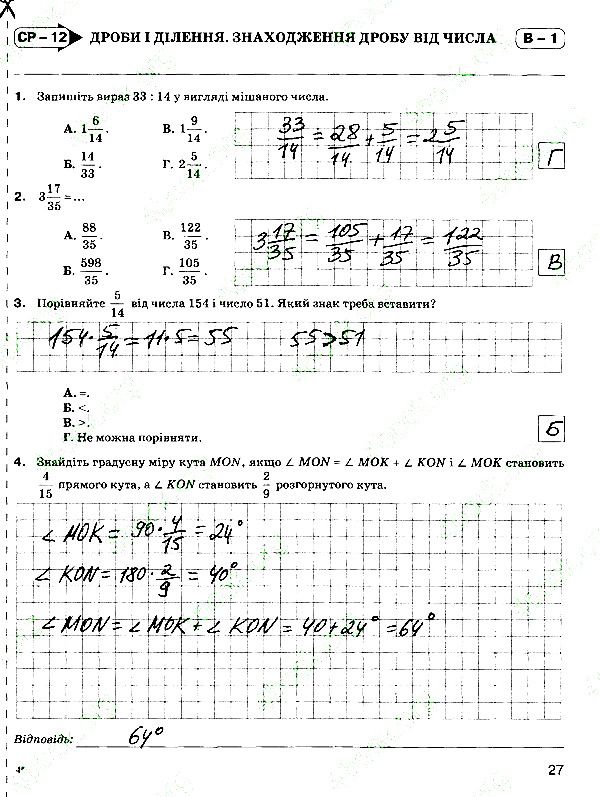 СР – 12 ДРОБИ І ДІЛЕННЯ. ЗНАХОДЖЕННЯ ДРОБУ ВІД ЧИСЛА В – 1
1. Запишіть вираз 33 : 14 у вигляді мішаного числа.
А. 1 6/14. В. 1 9/14.
Б. 14/33. Г. 2 5/14.
33/14 = 28/14 + 5/14 = 2 5/14
Г
2. 3 17/35 = ...
А. 88/35. В. 122/35.
Б. 598/35. Г. 105/35.
3 17/35 = 105/35 + 17/35 = 122/35
В
3. Порівняйте 5/14 від числа 154 і число 51. Який знак треба вставити?
154 · 5/14 = 11 · 5 = 55 55 > 51
А. =.
Б. <.
В. >.
Г. Не можна порівняти.
Б
4. Знайдіть градусну міру кута MON, якщо ∠ MON = ∠ MOK + ∠ KON і ∠ MOK становить
4/15 прямого кута, а ∠ KON становить 2/9 розгорнутого кута.
∠ MOK = 90 · 4/15 = 24°
∠ KON = 180 · 2/9 = 40°
∠ MON = ∠ MOK + ∠ KON = 40 + 24° = 64°
Відповідь: 64°
4* 27